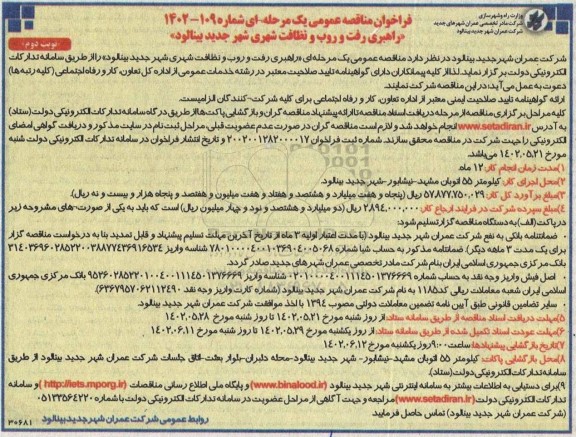 وزارت راه و شهرسازی
شرکت مادر تخصصی عمران شهرهای جدید
شرکت عمران شهر جدید بینالود
فراخوان مناقصه عمومی یک مرحله-ای شماره ۱۰۹-۱۴۰۲
«راهبری رفت و روب و نظافت شهری شهر جدید بینالود»
«نوبت دوم»
شرکت عمران شهر جدید بینالود در نظر دارد مناقصه عمومی یک مرحله-ای «راهبری رفت و روب و نظافت شهری شهر جدید بینالود» را از طریق سامانه تدارکات
الکترونیکی دولت برگزار نماید. لذا از کلیه پیمانکاران دارای گواهینامه تایید صلاحیت معتبر در رشته خدمات عمومی از اداره کل تعاون، کار و رفاه اجتماعی (کلیه رتبه ها)
دعوت به عمل می آید؛ در این مناقصه شرکت نمایند.
ارائه گواهینامه تایید صلاحیت ایمنی معتبر از اداره تعاون، کار و رفاه اجتماعی برای کلیه شرکت-کنندگان الزامیست.
کلیه مراحل برگزاری مناقصه از مرحله دریافت اسناد مناقصه تا ارائه پیشنهاد مناقصه گران و بازگشایی پاکت‌ها از طریق درگاه سامانه تدارکات الکترونیکی دولت (ستاد)
به آدرس www.setadiran.ir انجام خواهد شد و لازم است مناقصه گران در صورت عدم عضویت قبلی، مراحل ثبت نام در سایت مذکور و دریافت گواهی امضای
الکترونیکی را جهت شرکت در مناقصه محقق سازند. شماره ثبت فراخوان ۲۰۰۲۰۰۱۲۸۲۰۰۰۰۱۷ و تاریخ انتشار فراخوان در سامانه تدارکات الکترونیکی دولت شنبه
مورخ ۱۴۰۲.۰۵.۲۱ می‌باشد.
۱)مدت زمان انجام کار: ۱۲ ماه
۲)محل اجرای کار: کیلومتر ۵۵ اتوبان مشهد-نیشابور-شهر جدید بینالود.
۳)مبلغ برآورد کل کار: ۵۷،۸۷۷،۷۵۰،۰۲۹ ریال (پنجاه و هفت میلیارد و هشتصد و هفتاد و هفت میلیون و هفتصد و پنجاه هزار و بیست و نه ریال).
۴)مبلغ سپرده شرکت در فرایند ارجاع کار: ۲،۸۹۴،۰۰۰،۰۰۰ ریال (دو میلیارد و هشتصد و نود و چهار میلیون ریال) است که باید به یکی از صورت-های مشروحه زیر
در پاکت (الف) به دستگاه مناقصه گزار تسلیم شود:
- ضمانتنامه بانکی به نفع شرکت عمران شهر جدید بینالود (با مدت اعتبار اولیه ۳ ماه از تاریخ آخرین مهلت تسلیم پیشنهاد و قابل تمدید بنا به درخواست مناقصه گزار
برای یک مدت ۳ ماهه دیگر). ضمانتنامه مذکور به حساب شبا شماره
بانک مرکزی جمهوری اسلامی ایران بنام شرکت مادر تخصصی عمران شهرهای جدید صادر گردد.
- اصل فیش واریز وجه نقد به حساب شماره
اسلامی ایران شعبه معاملات ریالی کد ۱۱۸۵ به نام شرکت عمران شهر جدید بینالود (شماره کارت واریز وجه نقد ۶۳۶۷۹۵۷۰۶۲۱۱۲۴۹۰)
- سایر تضامین قانونی طبق آیین نامه تضمین معاملات دولتی مصوب ۱۳۹۴ با اخذ موافقت شرکت عمران شهر جدید بینالود.
۵)مهلت دریافت اسناد مناقصه از طریق سامانه ستاد: از روز شنبه مورخ ۱۴۰۲.۰۵.۲۱ تا روز شنبه مورخ ۱۴۰۲.۰۵.۲۸
۶)مهلت عودت اسناد تکمیل شده از طریق سامانه ستاد: از روز یکشنبه مورخ ۱۴۰۲.۰۵.۲۹ تا روز شنبه مورخ ۱۴۰۲.۰۶.۱۱
۷)تاریخ بازگشایی پیشنهادها: ساعت ۹:۰۰ روز یکشنبه مورخ ۱۴۰۲.۰۶.۱۲
۸)محل بازگشایی پاکات: کیلومتر ۵۵ اتوبان مشهد-نیشابور- شهر جدید بینالود-محله دلبران-بلوار بعثت-اتاق جلسات شرکت عمران شهر جدید بینالود از طریق
سامانه تدارکات الکترونیکی دولت (ستاد).
۹)برای دستیابی به اطلاعات بیشتر به سامانه اینترنتی شهر جدید بینالود (www.binalood.ir) و پایگاه ملی اطلاع رسانی مناقصات (http://iets.mporg.ir) و سامانه
تدارکات الکترونیکی دولت (www.setadiran.ir) مراجعه و جهت آگاهی از مراحل عضویت در سامانه تدارکات الکترونیکی دولت با شماره ۰۵۱۳۳۵۶۴۲۲۰
(شرکت عمران شهر جدید بینالود) تماس حاصل فرمایید
روابط عمومی شرکت عمران شهر جدید بینالود
۳۰۶۸۱